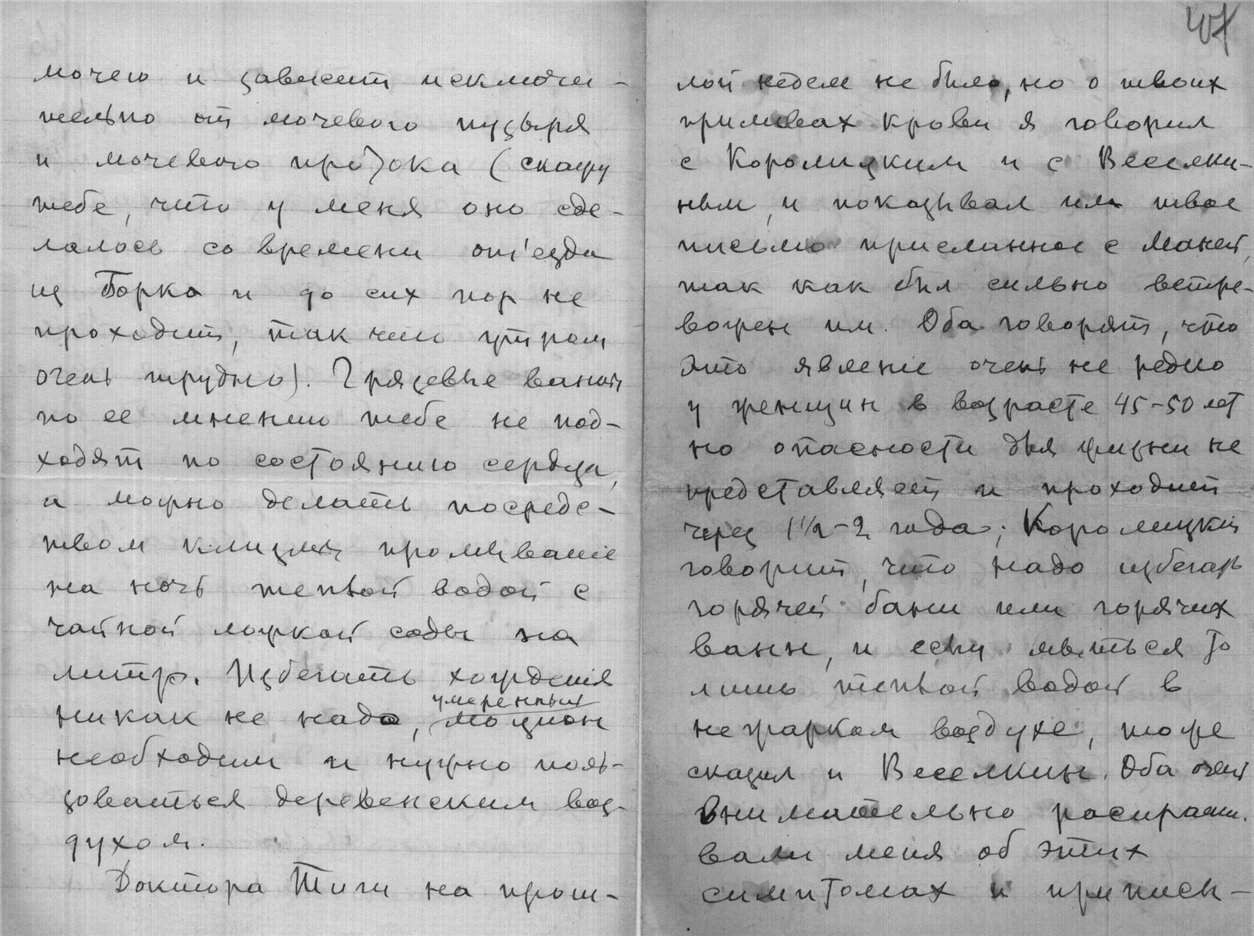 мочею и зависит исключи-
тельно от мочевого пузыря
и мочевого протока (скажу
тебе, что у меня оно сде-
лалось со времени от'езда
из Борка и до сих пор не
проходит, так что утром
очень трудно). Грязевые ванны
по ее мнению тебе не под-
ходят по состоянию сердца,
а можно делать посредс-
твом клизмы промывание
на ночь теплой водой с
чайной ложкой соды на
литр. Избегать хождения
никак не надо, умеренный моцион
необходим и нужно поль-
зоваться деревенским воз-
духом.
Доктора Тиги на прош-
47
лой неделе не было, но о твоих
приливах крови я говорил
с Королицким и с Веселки-
ным, и показывал им твое
письмо присланное с Маней,
так как был сильно встре-
вожен им. Оба говорят, что
это явление очень не редко
у женщин в возрасте 45-50 лет
но опасности для жизни не
представляет и проходит
через 1½-2 года; Королицкий
говорит, что надо избегать
горячей бани или горячих
ванн, и если мыться то
лишь теплой водой в
нежарком воздухе, тоже
сказал и Веселкин. Оба очень
внимательно расспраши-
вали меня об этих
симптомах и приписы-